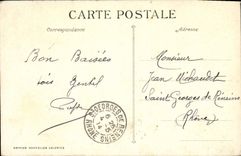 CARTE POSTALE
Correspondance
Adresse
Bon Baisers
sois Gentil
Monsieur
Jean Michaudet
Saint Georges de Reneins
Rhône
ST GEORGES DE RENEINS RHONE